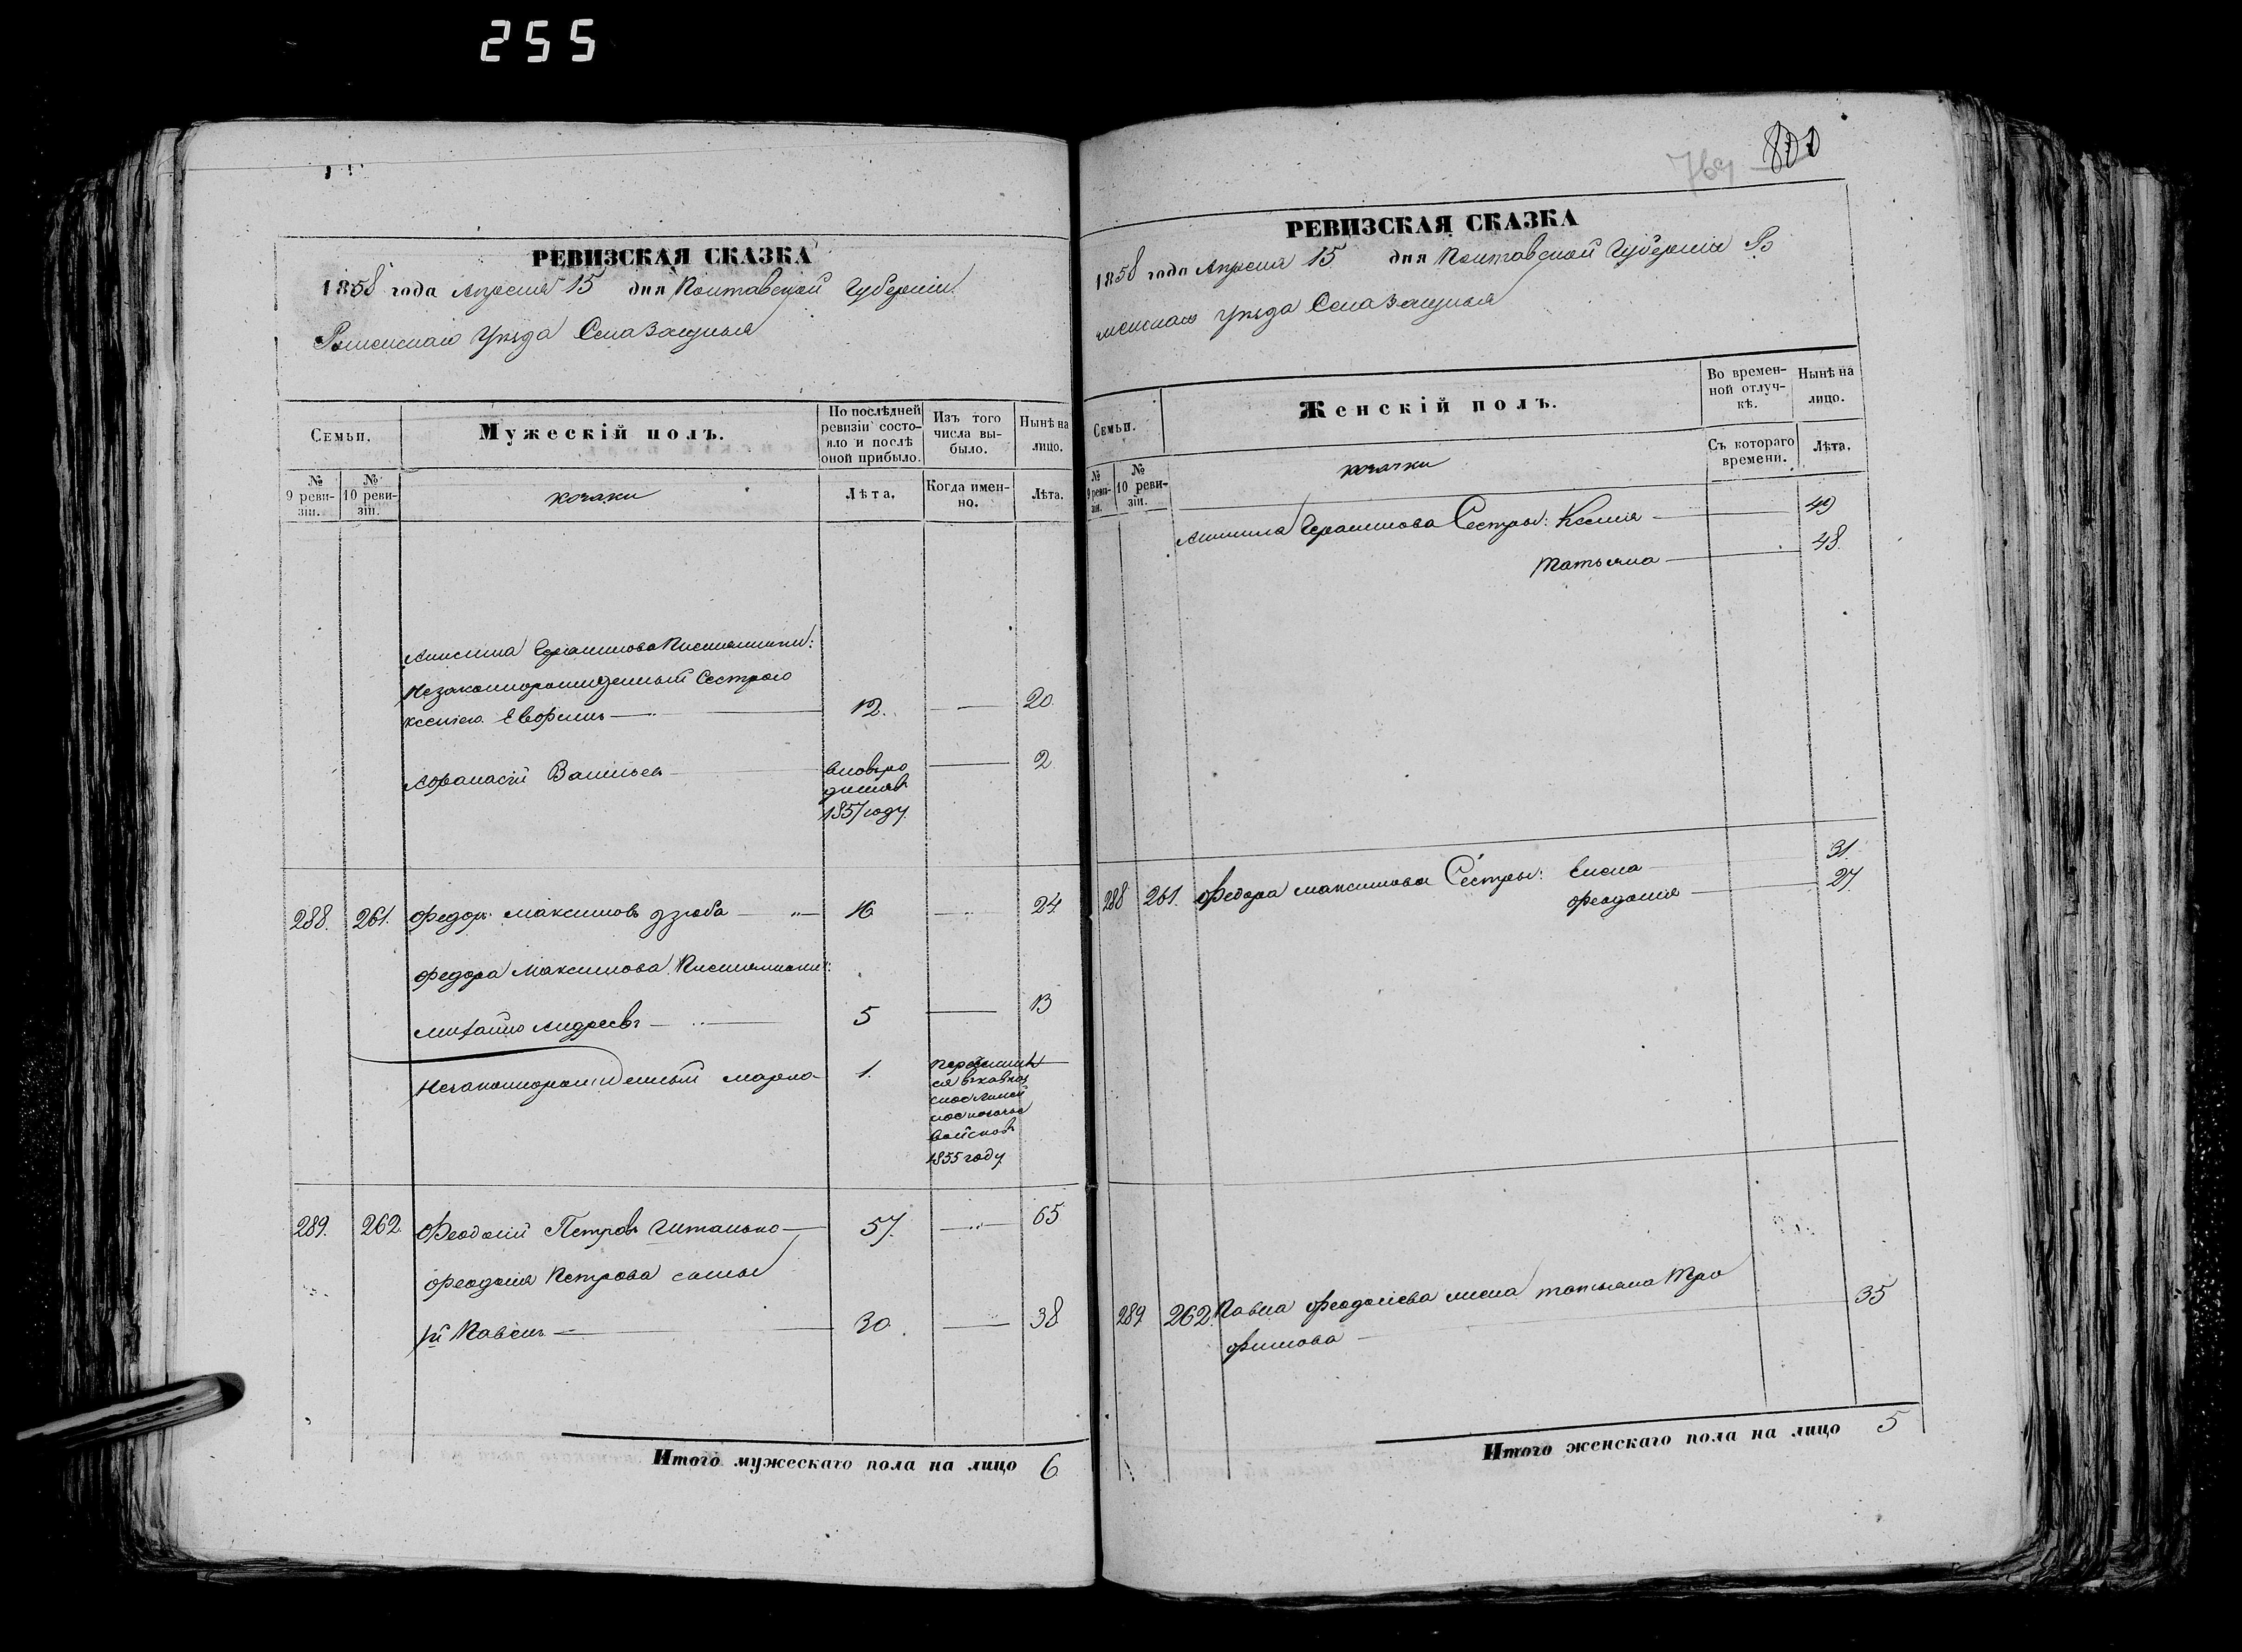 255
РЕВИЗСКАЯ СКАЗКА
1858 года Апреля 15 дня Полтавской Губернии
Роменскаго Уезда Села Засулья
Семьи.
Мужескій полъ.
По послѣдней ревизіи состояло и послѣ оной прибыло.
Изъ того числа выбыло.
Нынѣ на лицо.
№ 9 ревизіи.
№ 10 ревизіи.
козаки
Лѣта.
Когда именно.
Лѣта.
Герасимова Племянники:
Незаконнорожденный Сестрою
Ксениею Евфимъ 12. 20.
Афанасій Васильевъ вновьро 2
дился
1857 году.
288. 261. Федоръ Максимовъ Дзюба 16 24
Федора Максимова Племянники:
Михайло Андреевъ 5 13
Незаконнорожденный Марко 1. Переселил
ся в Кавказ
ское Линей
ное козачье
войско в
1855 году.
289. 262. Феодосий Петровъ 57. 65
Феодосия Петрова сынъ
1й Павелъ 30. 38
Итого мужескаго пола на лицо 6
769 801
РЕВИЗСКАЯ СКАЗКА
1858 года Апреля 15 дня Полтавской Губернии Ро
менскаго Уезда Села Засулья
Семьи.
Женскій полъ.
Во временной отлучкѣ.
Нынѣ на лицо.
№ 9 ревизіи.
№ 10 ревизіи.
козачки
Съ котораго времени.
Лѣта.
Герасимова Сестры: Ксения 49
Татьяна 48.
288 261. Федора Максимова Сестры: Елена 31.
Феодосия 27.
289 262. Павла Феодосиева жена Татьяна Тро
фимова 35
Итого женскаго пола на лицо 5